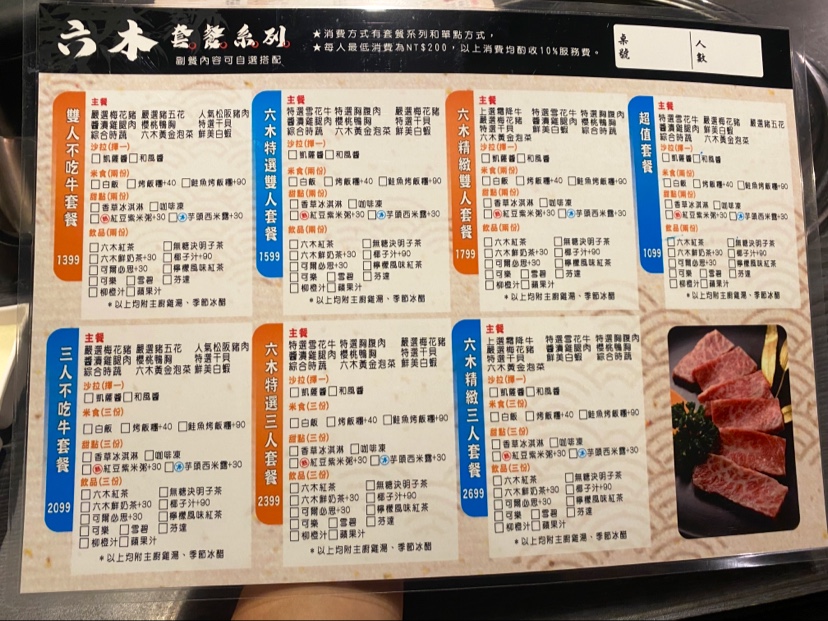 六木 套餐系列
副餐內容可自選搭配
★消費方式有套餐系列和單點方式，
★每人最低消費為NT$200，以上消費均酌收10%服務費。
桌號
人數
雙人不吃牛套餐
1399
主餐
嚴選梅花豬 嚴選豬五花 人氣松阪豬肉
醬漬雞腿肉 櫻桃鴨胸 特選干貝
綜合時蔬 六木黃金泡菜 鮮美白蝦
沙拉(擇一)
□凱薩醬□和風醬
米食(兩份)
□白飯 □烤飯糰+40 □鮭魚烤飯糰+90
甜點(兩份)
□香草冰淇淋 □咖啡凍
□熱紅豆紫米粥+30 □冰芋頭西米露+30
飲品(兩份)
□六木紅茶 □無糖決明子茶
□六木鮮奶茶+30 □椰子汁+90
□可爾必思+30 □檸檬風味紅茶
□可樂 □雪碧 □芬達
□柳橙汁□蘋果汁
*以上均附主廚雞湯、季節冰醋
六木特選雙人套餐
1599
主餐
特選雪花牛 特選胸腹肉 嚴選梅花豬
醬漬雞腿肉 櫻桃鴨胸 特選干貝
綜合時蔬 六木黃金泡菜 鮮美白蝦
沙拉(擇一)
□凱薩醬□和風醬
米食(兩份)
□白飯 □烤飯糰+40 □鮭魚烤飯糰+90
甜點(兩份)
□香草冰淇淋 □咖啡凍
□熱紅豆紫米粥+30 □冰芋頭西米露+30
飲品(兩份)
□六木紅茶 □無糖決明子茶
□六木鮮奶茶+30 □椰子汁+90
□可爾必思+30 □檸檬風味紅茶
□可樂 □雪碧 □芬達
□柳橙汁□蘋果汁
*以上均附主廚雞湯、季節冰醋
六木精緻雙人套餐
1799
主餐
上選霜降牛 特選雪花牛 特選胸腹肉
嚴選梅花豬 醬漬雞腿肉 櫻桃鴨胸
特選干貝 鮮美白蝦 綜合時蔬
六木黃金泡菜
沙拉(擇一)
□凱薩醬□和風醬
米食(兩份)
□白飯 □烤飯糰+40 □鮭魚烤飯糰+90
甜點(兩份)
□香草冰淇淋 □咖啡凍
□熱紅豆紫米粥+30 □冰芋頭西米露+30
飲品(兩份)
□六木紅茶 □無糖決明子茶
□六木鮮奶茶+30 □椰子汁+90
□可爾必思+30 □檸檬風味紅茶
□可樂 □雪碧 □芬達
□柳橙汁□蘋果汁
*以上均附主廚雞湯、季節冰醋
超值套餐
1099
主餐
特選雪花牛 嚴選梅花豬 嚴選豬五花
醬漬雞腿肉 鮮美白蝦
綜合時蔬 六木黃金泡菜
沙拉(擇一)
□凱薩醬□和風醬
米食(兩份)
□白飯 □烤飯糰+40 □鮭魚烤飯糰+90
甜點(兩份)
□香草冰淇淋 □咖啡凍
□熱紅豆紫米粥+30 □冰芋頭西米露+30
飲品(兩份)
□六木紅茶 □無糖決明子茶
□六木鮮奶茶+30 □椰子汁+90
□可爾必思+30 □檸檬風味紅茶
□可樂 □雪碧 □芬達
□柳橙汁□蘋果汁
*以上均附主廚雞湯、季節冰醋
三人不吃牛套餐
2099
主餐
嚴選梅花豬 嚴選豬五花 人氣松阪豬肉
醬漬雞腿肉 櫻桃鴨胸 特選干貝
綜合時蔬 六木黃金泡菜 鮮美白蝦
沙拉(擇一)
□凱薩醬□和風醬
米食(三份)
□白飯 □烤飯糰+40 □鮭魚烤飯糰+90
甜點(三份)
□香草冰淇淋 □咖啡凍
□熱紅豆紫米粥+30 □冰芋頭西米露+30
飲品(三份)
□六木紅茶 □無糖決明子茶
□六木鮮奶茶+30 □椰子汁+90
□可爾必思+30 □檸檬風味紅茶
□可樂 □雪碧 □芬達
□柳橙汁□蘋果汁
*以上均附主廚雞湯、季節冰醋
六木特選三人套餐
2399
主餐
特選雪花牛 特選胸腹肉 嚴選梅花豬
醬漬雞腿肉 櫻桃鴨胸 特選干貝
綜合時蔬 六木黃金泡菜 鮮美白蝦
沙拉(擇一)
□凱薩醬□和風醬
米食(三份)
□白飯 □烤飯糰+40 □鮭魚烤飯糰+90
甜點(三份)
□香草冰淇淋 □咖啡凍
□熱紅豆紫米粥+30 □冰芋頭西米露+30
飲品(三份)
□六木紅茶 □無糖決明子茶
□六木鮮奶茶+30 □椰子汁+90
□可爾必思+30 □檸檬風味紅茶
□可樂 □雪碧 □芬達
□柳橙汁□蘋果汁
*以上均附主廚雞湯、季節冰醋
六木精緻三人套餐
2699
主餐
上選霜降牛 特選雪花牛 特選胸腹肉
嚴選梅花豬 醬漬雞腿肉 櫻桃鴨胸
特選干貝 鮮美白蝦 綜合時蔬
六木黃金泡菜
沙拉(擇一)
□凱薩醬□和風醬
米食(三份)
□白飯 □烤飯糰+40 □鮭魚烤飯糰+90
甜點(三份)
□香草冰淇淋 □咖啡凍
□熱紅豆紫米粥+30 □冰芋頭西米露+30
飲品(三份)
□六木紅茶 □無糖決明子茶
□六木鮮奶茶+30 □椰子汁+90
□可爾必思+30 □檸檬風味紅茶
□可樂 □雪碧 □芬達
□柳橙汁□蘋果汁
*以上均附主廚雞湯、季節冰醋